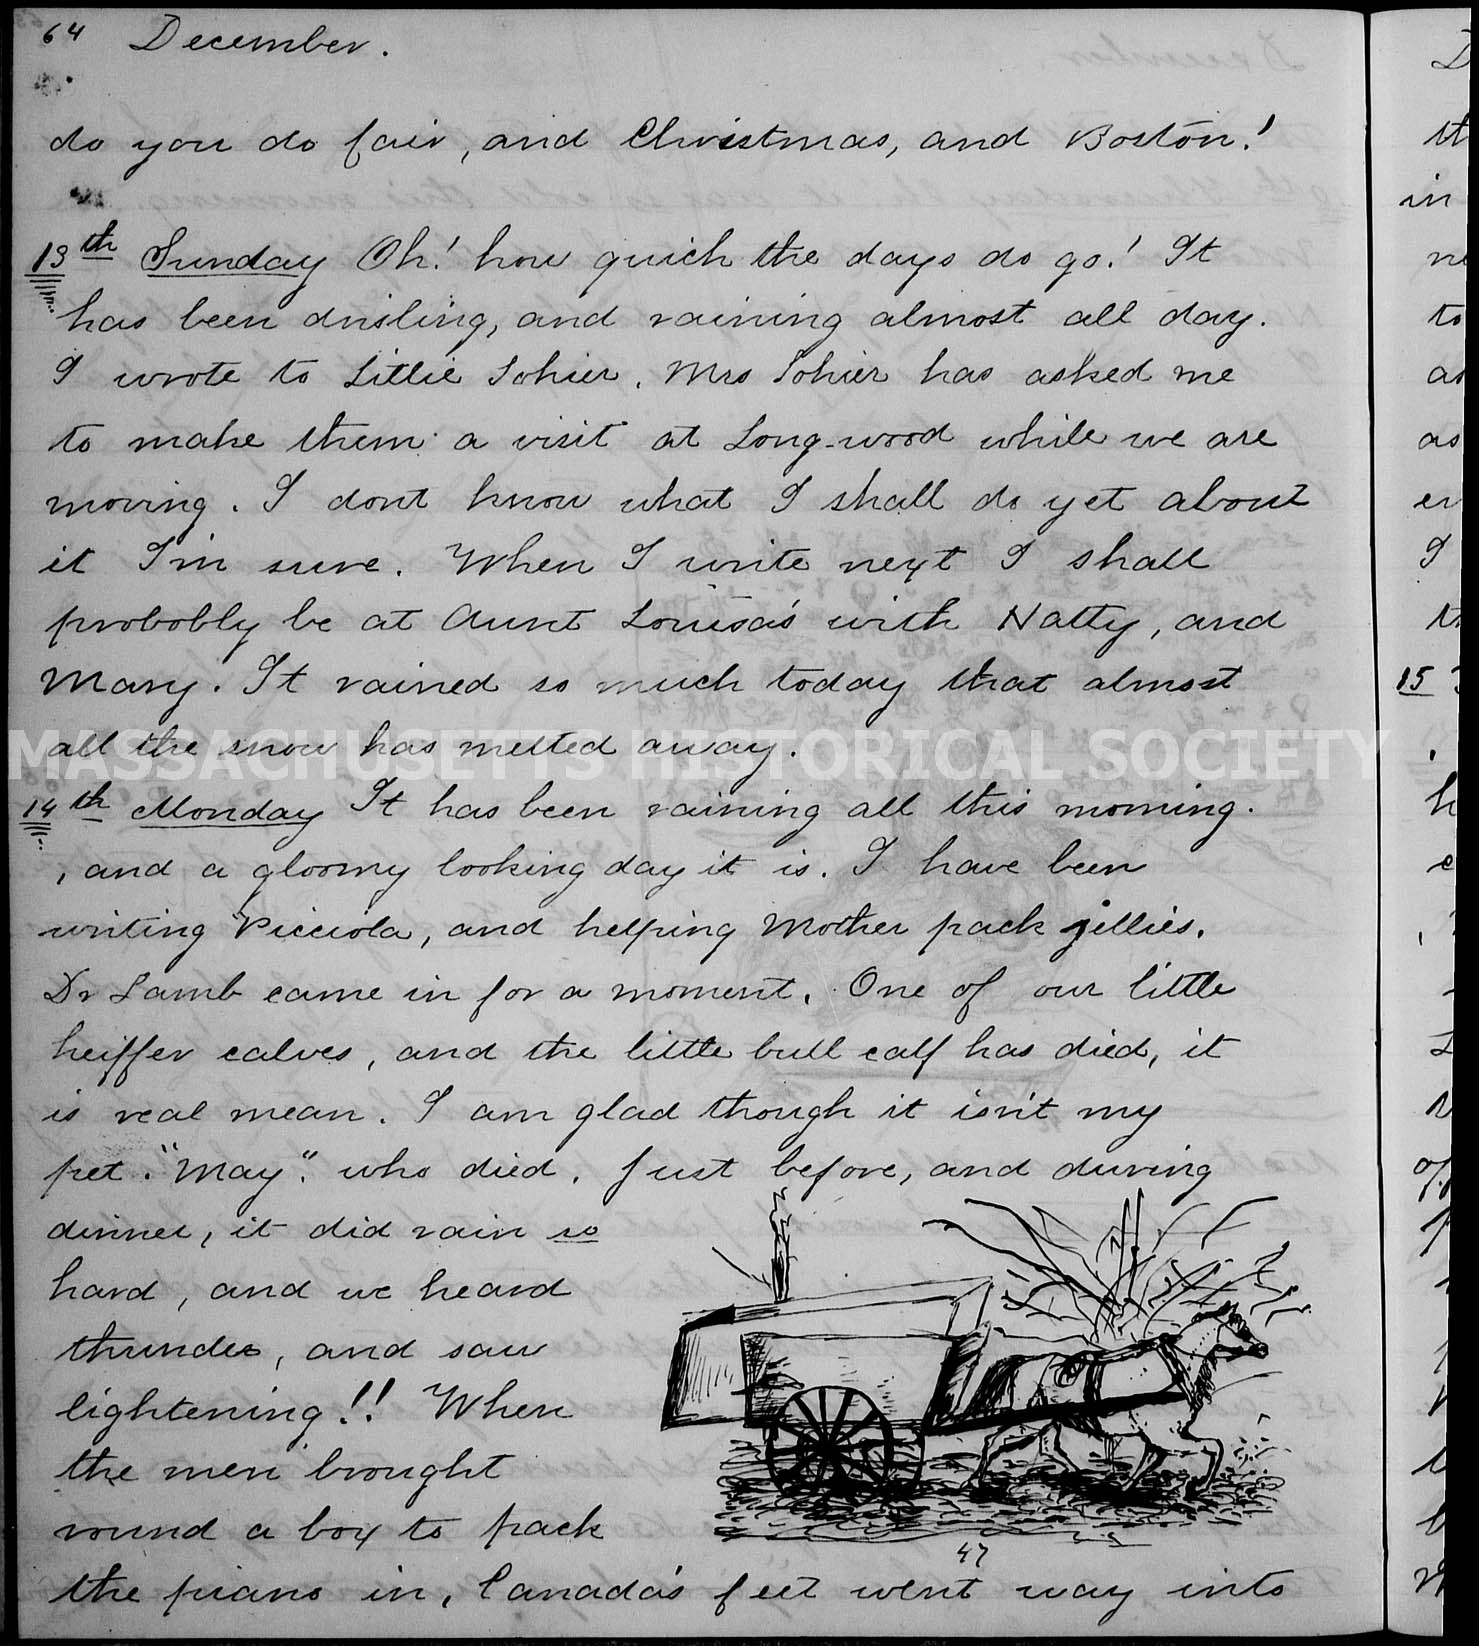 64 December.
do you do fair, and Christmas, and Boston!
13th Sunday Oh! how quick the days do go! It
has been drisling, and raining almost all day.
I wrote to Lillie Sohier. Mrs Sohier has asked me
to make them a visit at Long-wood while we are
moving. I dont know what I shall do yet about
it I'm sure. When I write next I shall
probobly be at Aunt Louisa's with Natty, and
Mary. It rained so much today that almost
all the snow has melted away.
MASSACHUSETTS HISTORICAL SOCIETY
14th Monday It has been raining all this morning.
, and a gloomy looking day it is. I have been
writing Picciola, and helping Mother pack jellies.
Dr Lamb came in for a moment. One of our little
heiffer calves, and the little bull calf has died, it
is real mean. I am glad though it isn't my
pet. "May". who died. Just before, and during
dinner, it did rain so
hard, and we heard
thunder, and saw
lightening!! When
the men brought
round a box to pack
47
the piano in, Canada's feet went way into
15